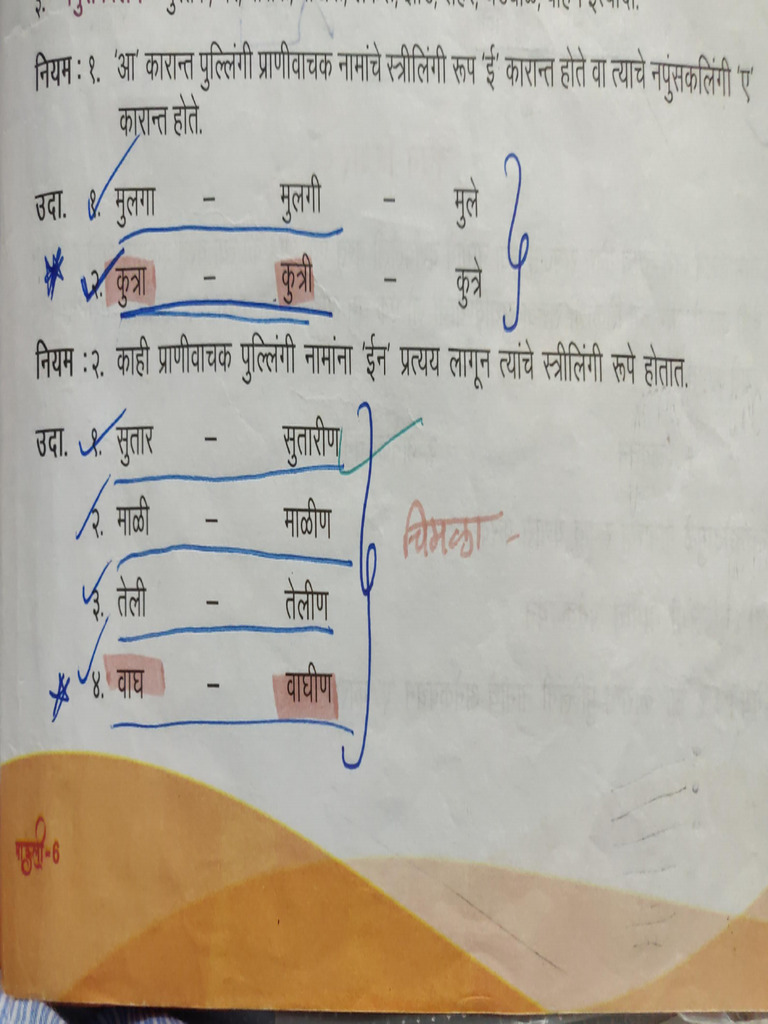 नियम : १. 'आ' कारान्त पुल्लिंगी प्राणीवाचक नामांचे स्त्रीलिंगी रूप 'ई' कारान्त होते वा त्याचे नपुंसकलिंगी 'ए'
कारान्त होते.
उदा. १. मुलगा - मुलगी - मुले
२. कुत्रा - कुत्री - कुत्रे
नियम : २. काही प्राणीवाचक पुल्लिंगी नामांना 'ईन' प्रत्यय लागून त्यांचे स्त्रीलिंगी रूपे होतात.
उदा. १. सुतार - सुतारीण
२. माळी - माळीण
चिमळा -
३. तेली - तेलीण
४. वाघ - वाघीण
-6